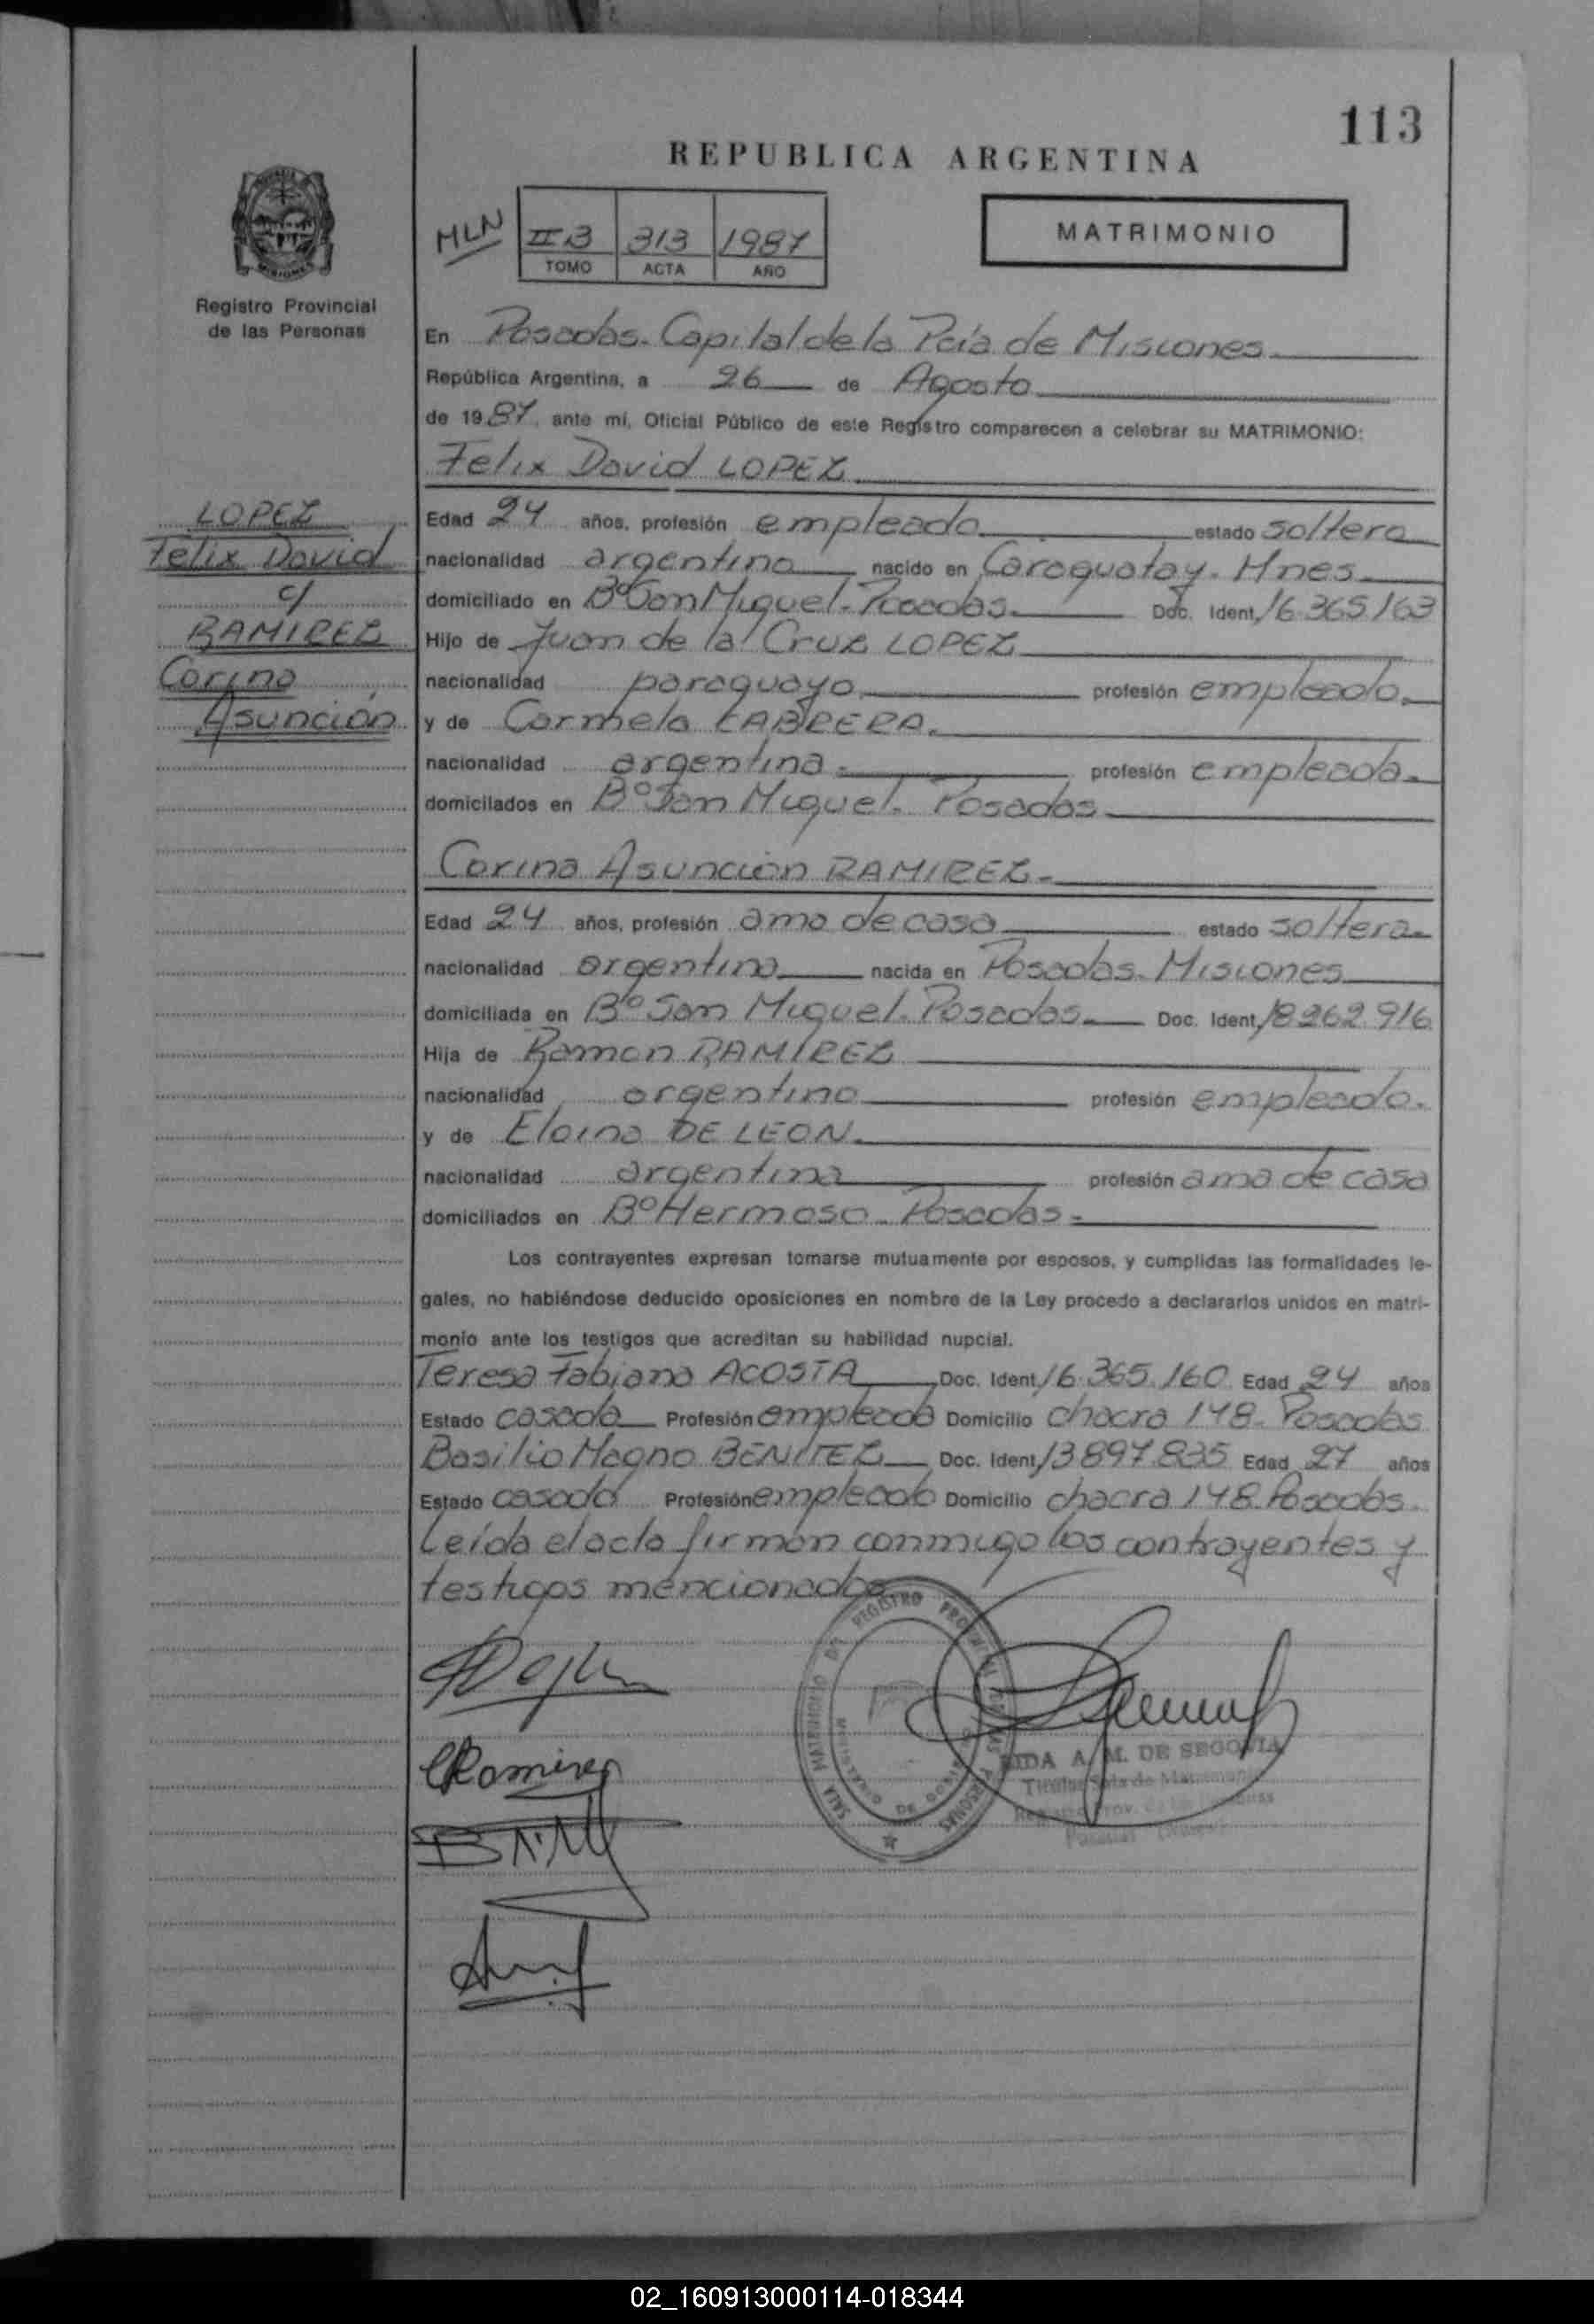 113
REPUBLICA ARGENTINA
MLN
II B 313 1987
TOMO ACTA AÑO
MATRIMONIO
MISIONES
Registro Provincial
de las Personas
En Posadas. Capital de la Pcia de Misiones
República Argentina, a 26 de Agosto
de 1987 ante mí, Oficial Público de este Registro comparecen a celebrar su MATRIMONIO:
Felix David LOPEZ
LOPEZ
Felix David
c/
RAMIREZ
Corina
Asunción
Edad 24 años, profesión empleado estado soltero
nacionalidad argentino nacido en Caraguatay. Mnes.
domiciliado en B° San Miguel. Posadas. Doc. Ident. 16.365.163
Hijo de Juan de la Cruz LOPEZ
nacionalidad paraguayo profesión empleado.
y de Carmela CABRERA.
nacionalidad argentina. profesión empleada.
domicilados en B° San Miguel. Posadas
Corina Asunción RAMIREZ.
Edad 24 años, profesión ama de casa estado soltera.
nacionalidad argentina nacida en Posadas. Misiones
domiciliada en B° San Miguel. Posadas. Doc. Ident. 18.262.916
Hija de Ramon RAMIREZ
nacionalidad argentino profesión empleado.
y de Elaina DE LEON.
nacionalidad argentina profesión ama de casa
domiciliados en B° Hermoso. Posadas.
Los contrayentes expresan tomarse mutuamente por esposos, y cumplidas las formalidades le-
gales, no habiéndose deducido oposiciones en nombre de la Ley procedo a declararlos unidos en matri-
monio ante los testigos que acreditan su habilidad nupcial.
Teresa Fabiana ACOSTA Doc. Ident. 16.365.160 Edad 24 años
Estado casada Profesión empleada Domicilio chacra 148. Posadas
Basilio Magno BENITEZ Doc. Ident. 13.897.835 Edad 27 años
Estado casado Profesión empleado Domicilio chacra 148. Posadas.
Leída el acta firman conmigo los contrayentes y
testigos mencionados
CRamirez
SALA MATRIMONIO DE REGISTRO PROVINCIAL PERSONAS
MINISTERIO DE GOBIERNO
A. M. DE SEGOVIA
Titular Sala de Matrimonio
02_160913000114-018344